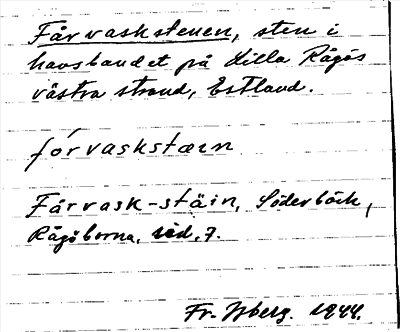 Fårvaskstenen, sten i
havsbandet på Lilla Rågös
västra strand, Estland.
fórvaskstæin
Fårvask-stäin, Söderbäck,
Rågöborna, sid. 7.
Fr. Isberg. 1944.